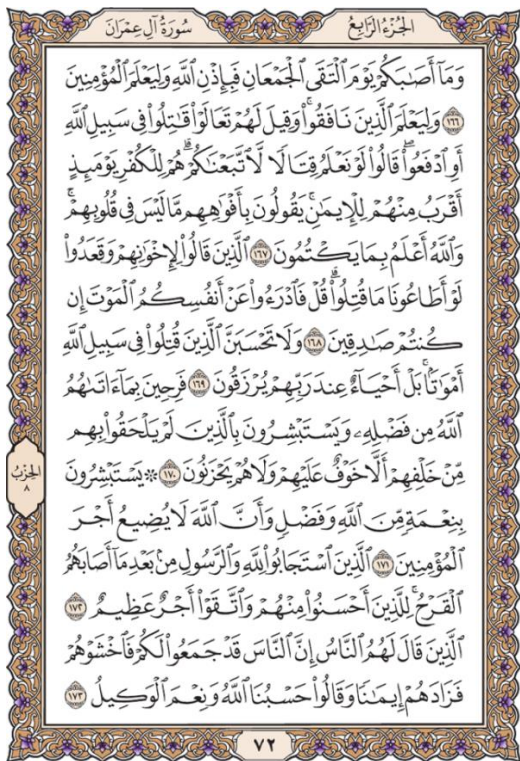 الجُزْءُ الرَّابِعُ
سُورَةُ آلِ عِمْرَان
وَمَآ أَصَٰبَكُمْ يَوْمَ ٱلْتَقَى ٱلْجَمْعَانِ فَبِإِذْنِ ٱللَّهِ وَلِيَعْلَمَ ٱلْمُؤْمِنِينَ
١٦٦ وَلِيَعْلَمَ ٱلَّذِينَ نَافَقُوا۟ۚ وَقِيلَ لَهُمْ تَعَالَوْا۟ قَٰتِلُوا۟ فِى سَبِيلِ ٱللَّهِ
أَوِ ٱدْفَعُوا۟ۖ قَالُوا۟ لَوْ نَعْلَمُ قِتَالًا لَّٱتَّبَعْنَٰكُمْۗ هُمْ لِلْكُفْرِ يَوْمَئِذٍ
أَقْرَبُ مِنْهُمْ لِلْإِيمَٰنِۚ يَقُولُونَ بِأَفْوَٰهِهِم مَّا لَيْسَ فِى قُلُوبِهِمْۚ
وَٱللَّهُ أَعْلَمُ بِمَا يَكْتُمُونَ ١٦٧ ٱلَّذِينَ قَالُوا۟ لِإِخْوَٰنِهِمْ وَقَعَدُوا۟
لَوْ أَطَاعُونَا مَا قُتِلُوا۟ۗ قُلْ فَٱدْرَءُوا۟ عَنْ أَنفُسِكُمُ ٱلْمَوْتَ إِن
كُنتُمْ صَٰدِقِينَ ١٦٨ وَلَا تَحْسَبَنَّ ٱلَّذِينَ قُتِلُوا۟ فِى سَبِيلِ ٱللَّهِ
أَمْوَٰتًۢاۚ بَلْ أَحْيَآءٌ عِندَ رَبِّهِمْ يُرْزَقُونَ ١٦٩ فَرِحِينَ بِمَآ ءَاتَىٰهُمُ
ٱللَّهُ مِن فَضْلِهِۦ وَيَسْتَبْشِرُونَ بِٱلَّذِينَ لَمْ يَلْحَقُوا۟ بِهِم
مِّنْ خَلْفِهِمْ أَلَّا خَوْفٌ عَلَيْهِمْ وَلَا هُمْ يَحْزَنُونَ ١٧٠ ۞ يَسْتَبْشِرُونَ
بِنِعْمَةٍ مِّنَ ٱللَّهِ وَفَضْلٍ وَأَنَّ ٱللَّهَ لَا يُضِيعُ أَجْرَ
ٱلْمُؤْمِنِينَ ١٧١ ٱلَّذِينَ ٱسْتَجَابُوا۟ لِلَّهِ وَٱلرَّسُولِ مِنۢ بَعْدِ مَآ أَصَابَهُمُ
ٱلْقَرْحُۚ لِلَّذِينَ أَحْسَنُوا۟ مِنْهُمْ وَٱتَّقَوْا۟ أَجْرٌ عَظِيمٌ ١٧٢
ٱلَّذِينَ قَالَ لَهُمُ ٱلنَّاسُ إِنَّ ٱلنَّاسَ قَدْ جَمَعُوا۟ لَكُمْ فَٱخْشَوْهُمْ
فَزَادَهُمْ إِيمَٰنًا وَقَالُوا۟ حَسْبُنَا ٱللَّهُ وَنِعْمَ ٱلْوَكِيلُ ١٧٣
الحِزْبُ
٨
٧٢